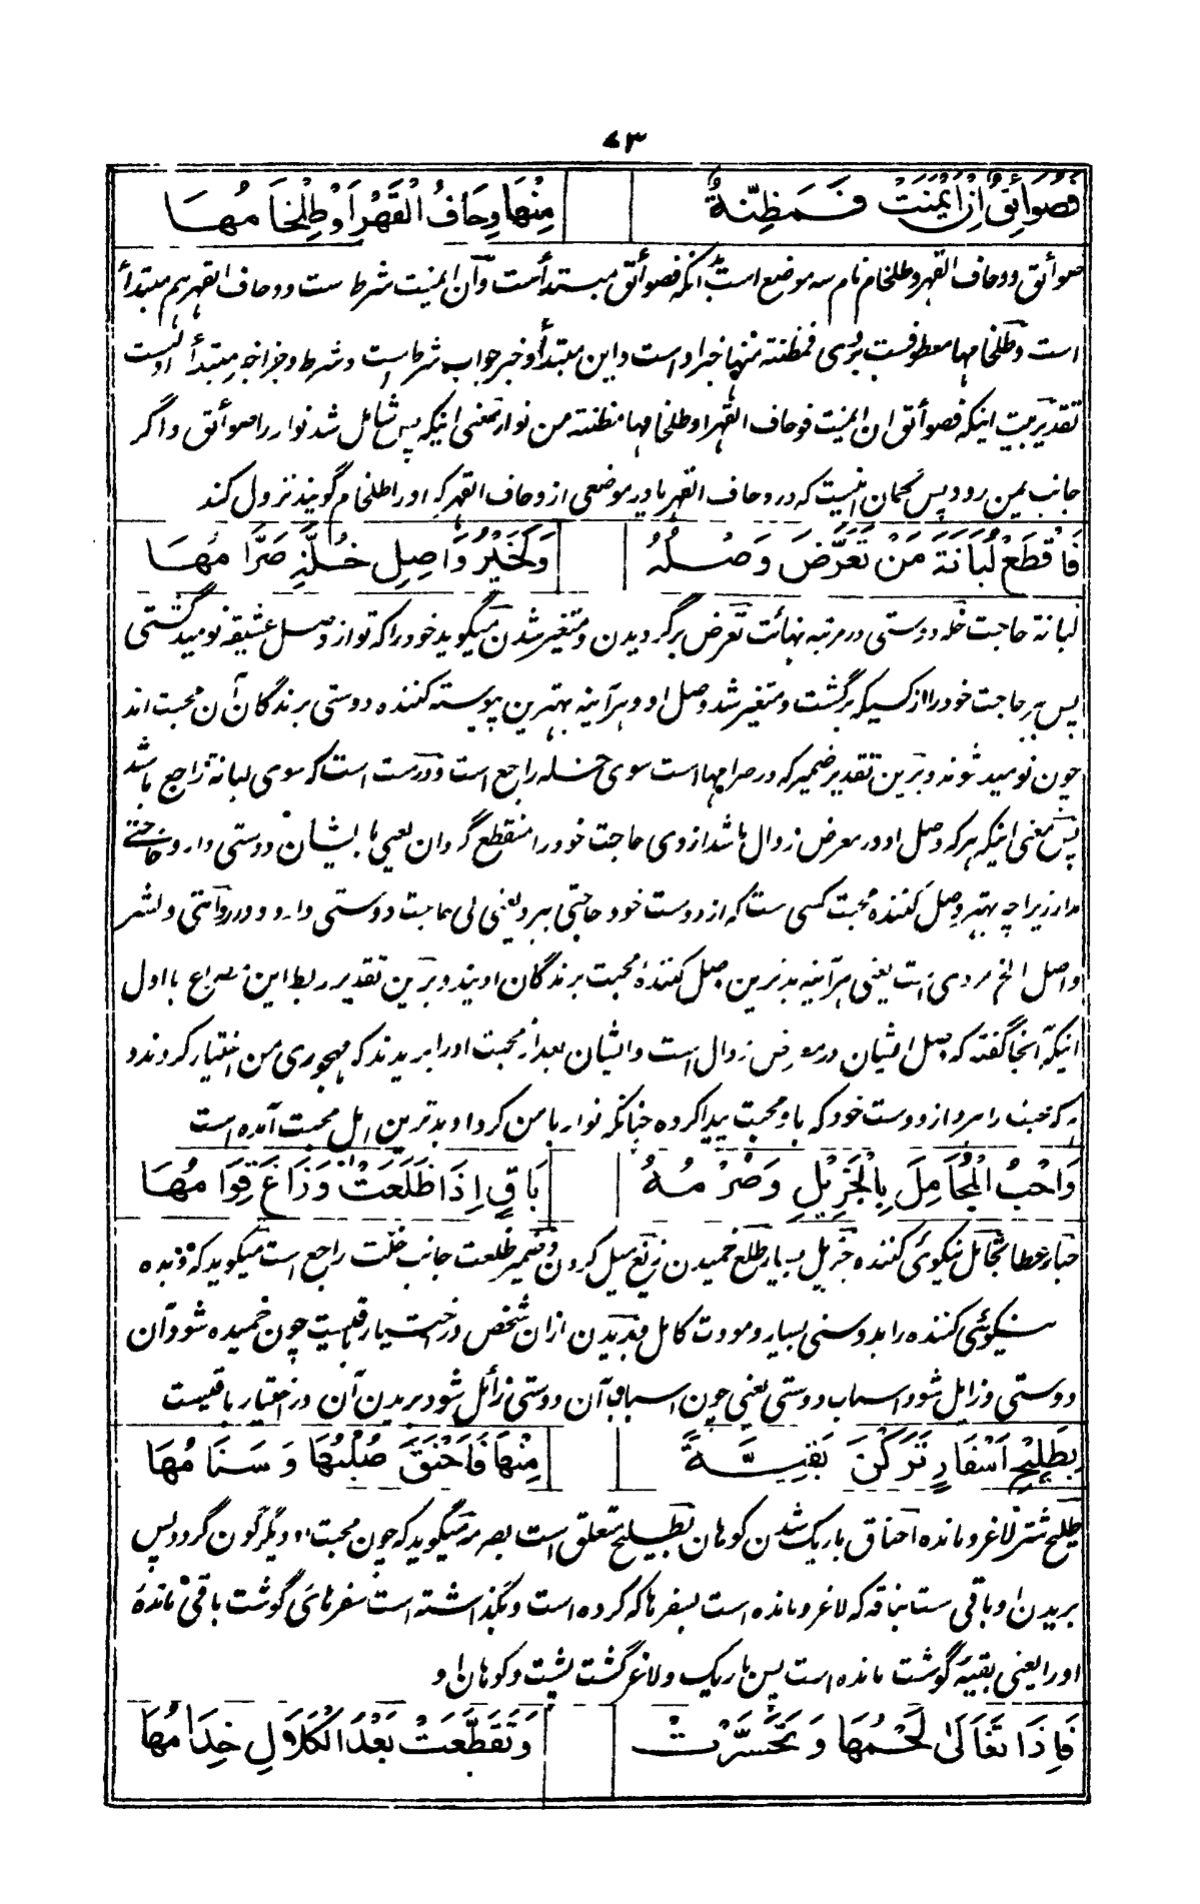 ۷۳
فَصُوَائِقٌ اِنْ اَیْمَنَتْ فَمَظِنَّةٌ مِنْهَا وِحَافُ الْقَهْرِ اَوْ طِلْخَامُهَا
صوائق ووحاف القهر وطلخام نام سه موضع است آنکه فصوائق مبتدأست وان ایمنت شرط ست ووحاف القهر هم مبتدأ
است وطلخامها معطوفست بروی فمظنته منها خبر اوست واین مبتدأ وخبر جواب شرط است وشرط وجزا خبر مبتدأ اولست
تقدیر بیت اینکه فصوائق ان ایمنت فوحاف القهر او طلخامها مظنته من نوار بمعنی اینکه پس شامل شد نوار را صوائق واگر
جانب یمن رود پس گمان اینست که در وحاف القهر یا در موضعی از وحاف القهر که او را طلخام گویند نزول کند
فَاقْطَعْ لُبَانَةَ مَنْ تَعَرَّضَ وَصْلُهُ وَلَخَیْرُ وَاصِلِ خُلَّةٍ صَرَّامُهَا
لبانة حاجت خله دوستی در مرتبه نهائت تعرض برگردیدن ومتغیر شدن میگوید خود را که تو از وصل عشیقه نومید گشتی
پس ببر حاجت خود را از کسیکه برگشت ومتغیر شد وصل او وهر آینه بهترین پیوسته کننده دوستی برندگان آن محبت اند
چون نومید شوند وبرین تقدیر ضمیر که در صرامها است سوی خله راجع است ودرست است که سوی لبانة راجع باشد
پس معنی اینکه هر که وصل او در معرض زوال باشد از وی حاجت خود را منقطع گردان یعنی با ایشان دوستی دار وحاجتے
مدار زیراچه بهتر وصل کننده محبت کسی ست که از دوست خود حاجتی ببرد یعنی بی حاجت دوستی دارد ودر روایتی ولشر
واصل الخ مروی است یعنی هر آئینه بدترین وصل کنندهٔ محبت برندگان اویند وبرین تقدیر ربط این مصراع با اول
اینکه آنجا گفته که وصل ایشان در معرض زوال است وایشان بعد از محبت او را بریدند که مهجوری من اختیار کردند و
که محبت را ببرد از دوست خود که با و محبت پیدا کرده چنانکه نوار با من کرد او بدترین اهل محبت آمده است
وَاحْبُ الْمُجَامِلَ بِالْجَزِیْلِ وَصُرْمُهُ بَاقٍ اِذَا ظَلَعَتْ وَزَاغَ قِوَامُهَا
حباء عطا مجامل نیکوئی کننده جزیل بسیار ظلع خمیدن زیغ میل کردن وضمیر ظلعت جانب خلت راجع است میگوید که وبده
نیکوئی کننده را بدوستی بسیار ومودت کامل وبریدن ازان شخص در اختیار باقیست چون خمیده شود آن
دوستی وزایل شود اسباب دوستی یعنی چون اسباب آن دوستی زائل شود بریدن آن در اختیار باقیست
بِطَلِیْحِ اَسْفَارٍ تَرَکْنَ بَقِیَّةً مِنْهَا فَاَحْنَقَ صُلْبُهَا وَسَنَامُهَا
طلیح شتر لاغر ومانده احناق باریک شدن کوهان بطلیح متعلق است بصرمه میگوید که چون محبت او دیگرگون گردد پس
بریدن او باقی ست بناقه که لاغر ومانده است بسفرها که کرده است ونگذاشته است سفرهای گوشت باقی ماندهٔ
او را یعنی بقیهٔ گوشت مانده است پس باریک ولاغر گشت پشت وکوهان او
فَاِذَا تَغَالٰی لَحْمُهَا وَتَحَسَّرَتْ وَتَقَطَّعَتْ بَعْدَ الْکَلَالِ خِدَامُهَا